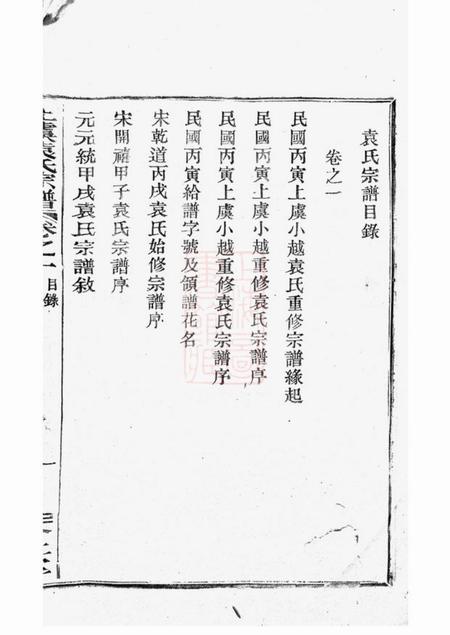 袁氏宗譜目錄
卷之一
民國丙寅上虞小越袁氏重修宗譜緣起
民國丙寅上虞小越重修袁氏宗譜序
民國丙寅上虞小越重修袁氏宗譜序
民國丙寅給譜字號及領譜花名
宋乾道丙戌袁氏始修宗譜序
宋開禧甲子袁氏宗譜序
元元統甲戌袁氏宗譜敘
上虞袁氏宗譜 卷之一 目錄
一